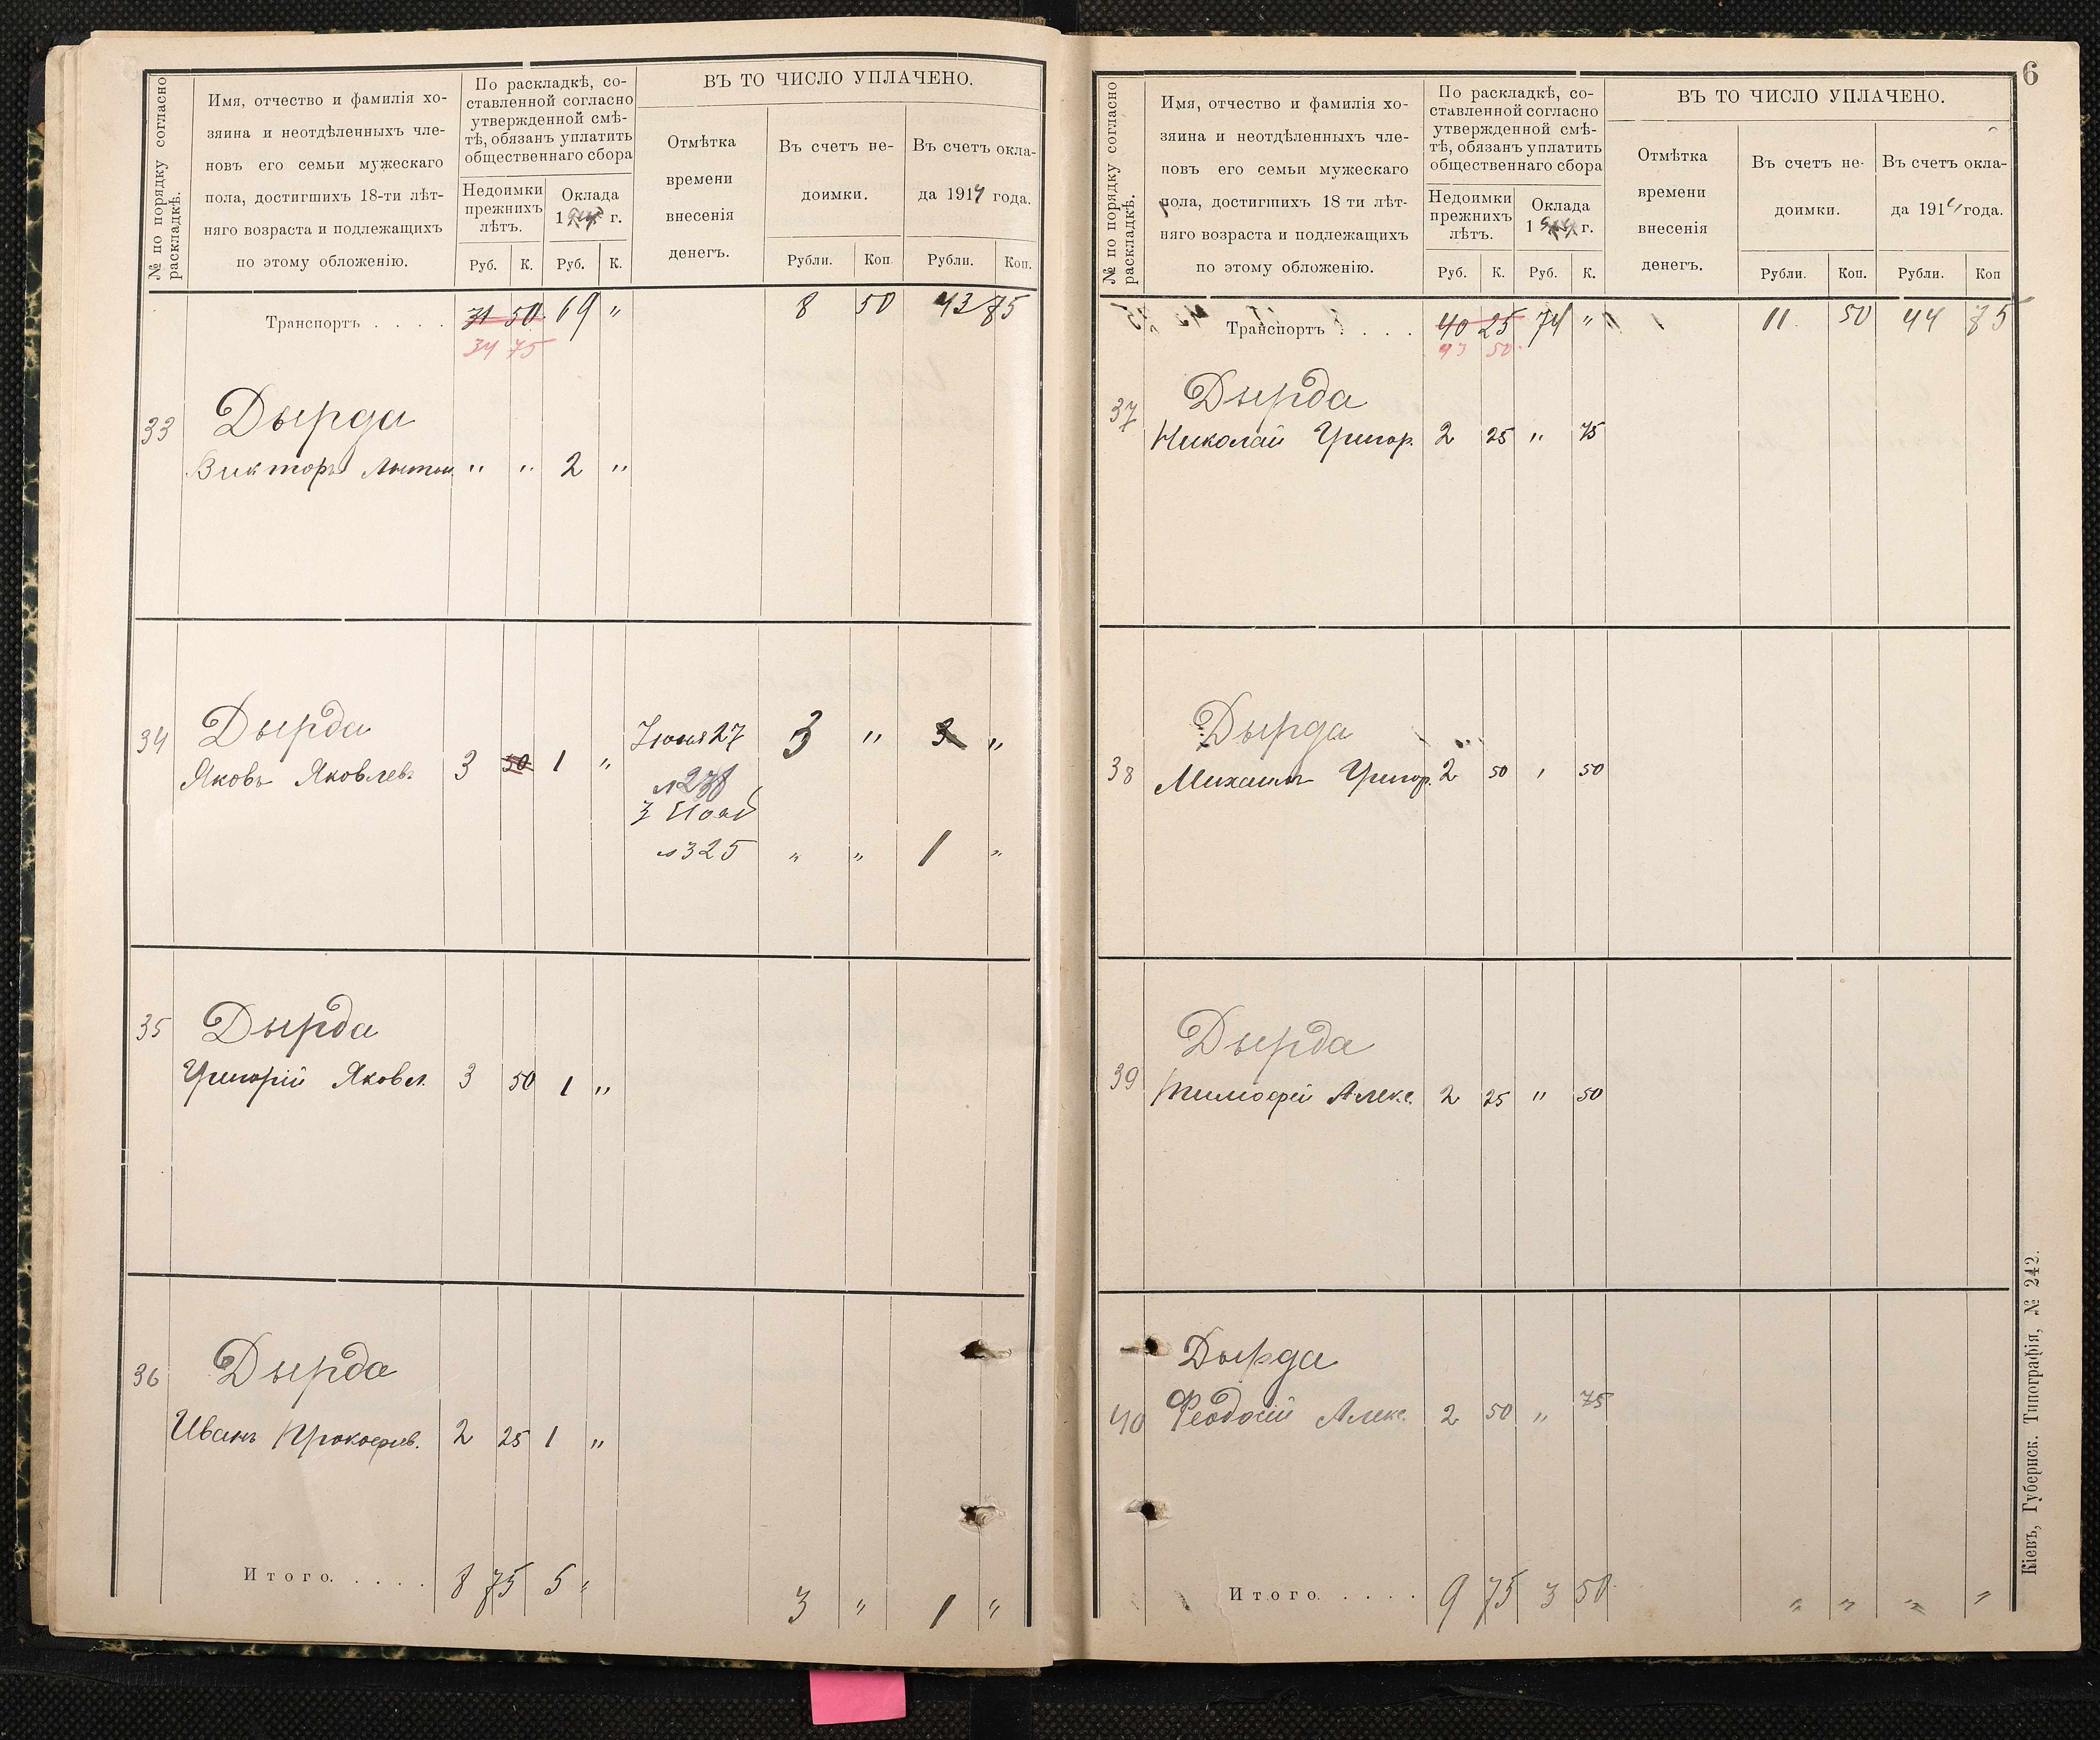 № по порядку согласно
раскладкѣ.
Имя, отчество и фамилія хо-
зяина и неотдѣленныхъ чле-
новъ его семьи мужескаго
пола, достигшихъ 18-ти лѣт-
няго возраста и подлежащихъ
по этому обложенію.
По раскладкѣ, со-
ставленной согласно
утвержденной смѣ-
тѣ, обязанъ уплатить
общественнаго сбора
Недоимки
прежнихъ
лѣтъ.
Оклада
г.
Руб. К. Руб. К.
ВЪ ТО ЧИСЛО УПЛАЧЕНО.
Отмѣтка
времени
внесенія
денегъ.
Въ счетъ не-
доимки.
Въ счетъ окла-
да 1914 года.
Рубли. Коп Рубли. Коп.
Транспортъ . . . . 31 50 69 " 8 50 43 85
34 75
33 Дырда
Викторъ " " 2 "
34 Дырда
Яковъ Яковлев. 3 50 1 " Іюня 27 3 " 3 "
3
№ 325 " " 1 "
35 Дырда
Григорій Яковл. 3 50 1 "
36 Дырда
Иванъ Прокофиев. 2 25 1 "
Итого. . . . . 8 75 5 " 3 " 1 "
6
№ по порядку согласно
раскладкѣ.
Имя, отчество и фамилія хо-
зяина и неотдѣленныхъ чле-
новъ его семьи мужескаго
пола, достигшихъ 18 ти лѣт-
няго возраста и подлежащихъ
по этому обложенію.
По раскладкѣ, со-
ставленной согласно
утвержденной смѣ-
тѣ, обязанъ уплатить
общественнаго сбора
Недоимки
прежнихъ
лѣтъ.
Оклада
г.
Руб. К. Руб. К.
ВЪ ТО ЧИСЛО УПЛАЧЕНО.
Отмѣтка
времени
внесенія
денегъ.
Въ счетъ не-
доимки.
Въ счетъ окла-
да 1914 года.
Рубли. Коп. Рубли. Коп
Транспортъ . . . . 40 25 74 " 11 50 44 85
43 50
37 Дырда
Николай Григор. 2 25 " 75
38 Дырда
Михаилъ Григор. 2 50 " 50
39 Дырда
Тимофей Алекс. 2 25 " 50
40 Дырда
Феодосій Алекс. 2 50 " 75
Итого. . . . . 9 75 3 50 " " " "
Кіевъ, Губернск. Типографія, № 242.